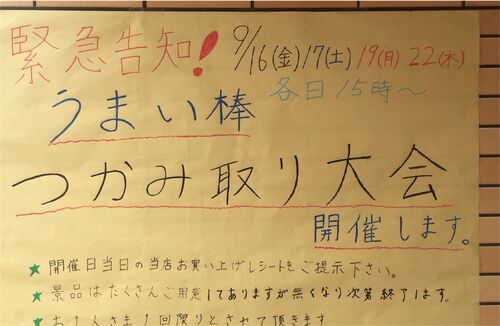 緊急告知!
9/16(金)17(土)19(月)22(木)
各日15時〜
うまい棒
つかみ取り大会
開催します。
★開催日当日の当店お買い上げレシートをご提示下さい。
★景品はたくさんご用意してありますが無くなり次第終了します。
★お1人さま1回限りとさせて頂きます